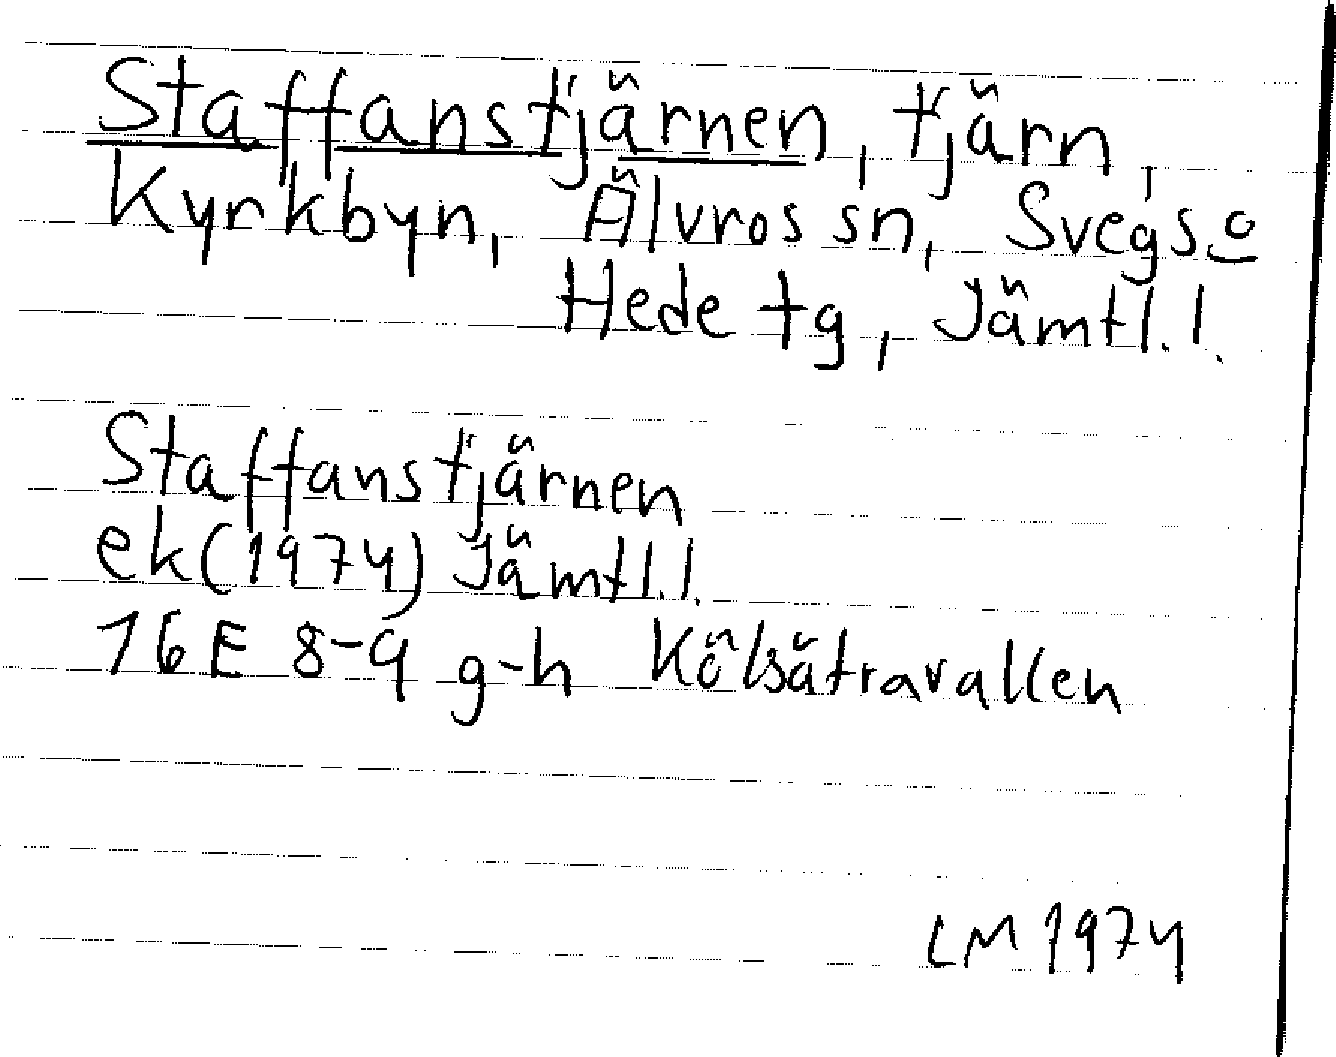 Staffanstjärnen, tjärn,
Kyrkbyn, Älvros sn, Svegs o
Hede tg, Jämtl.l.
Staffanstjärnen
ek(1974) Jämtl.l.
16E 8-9 g-h Kölsätravallen
LM 1974